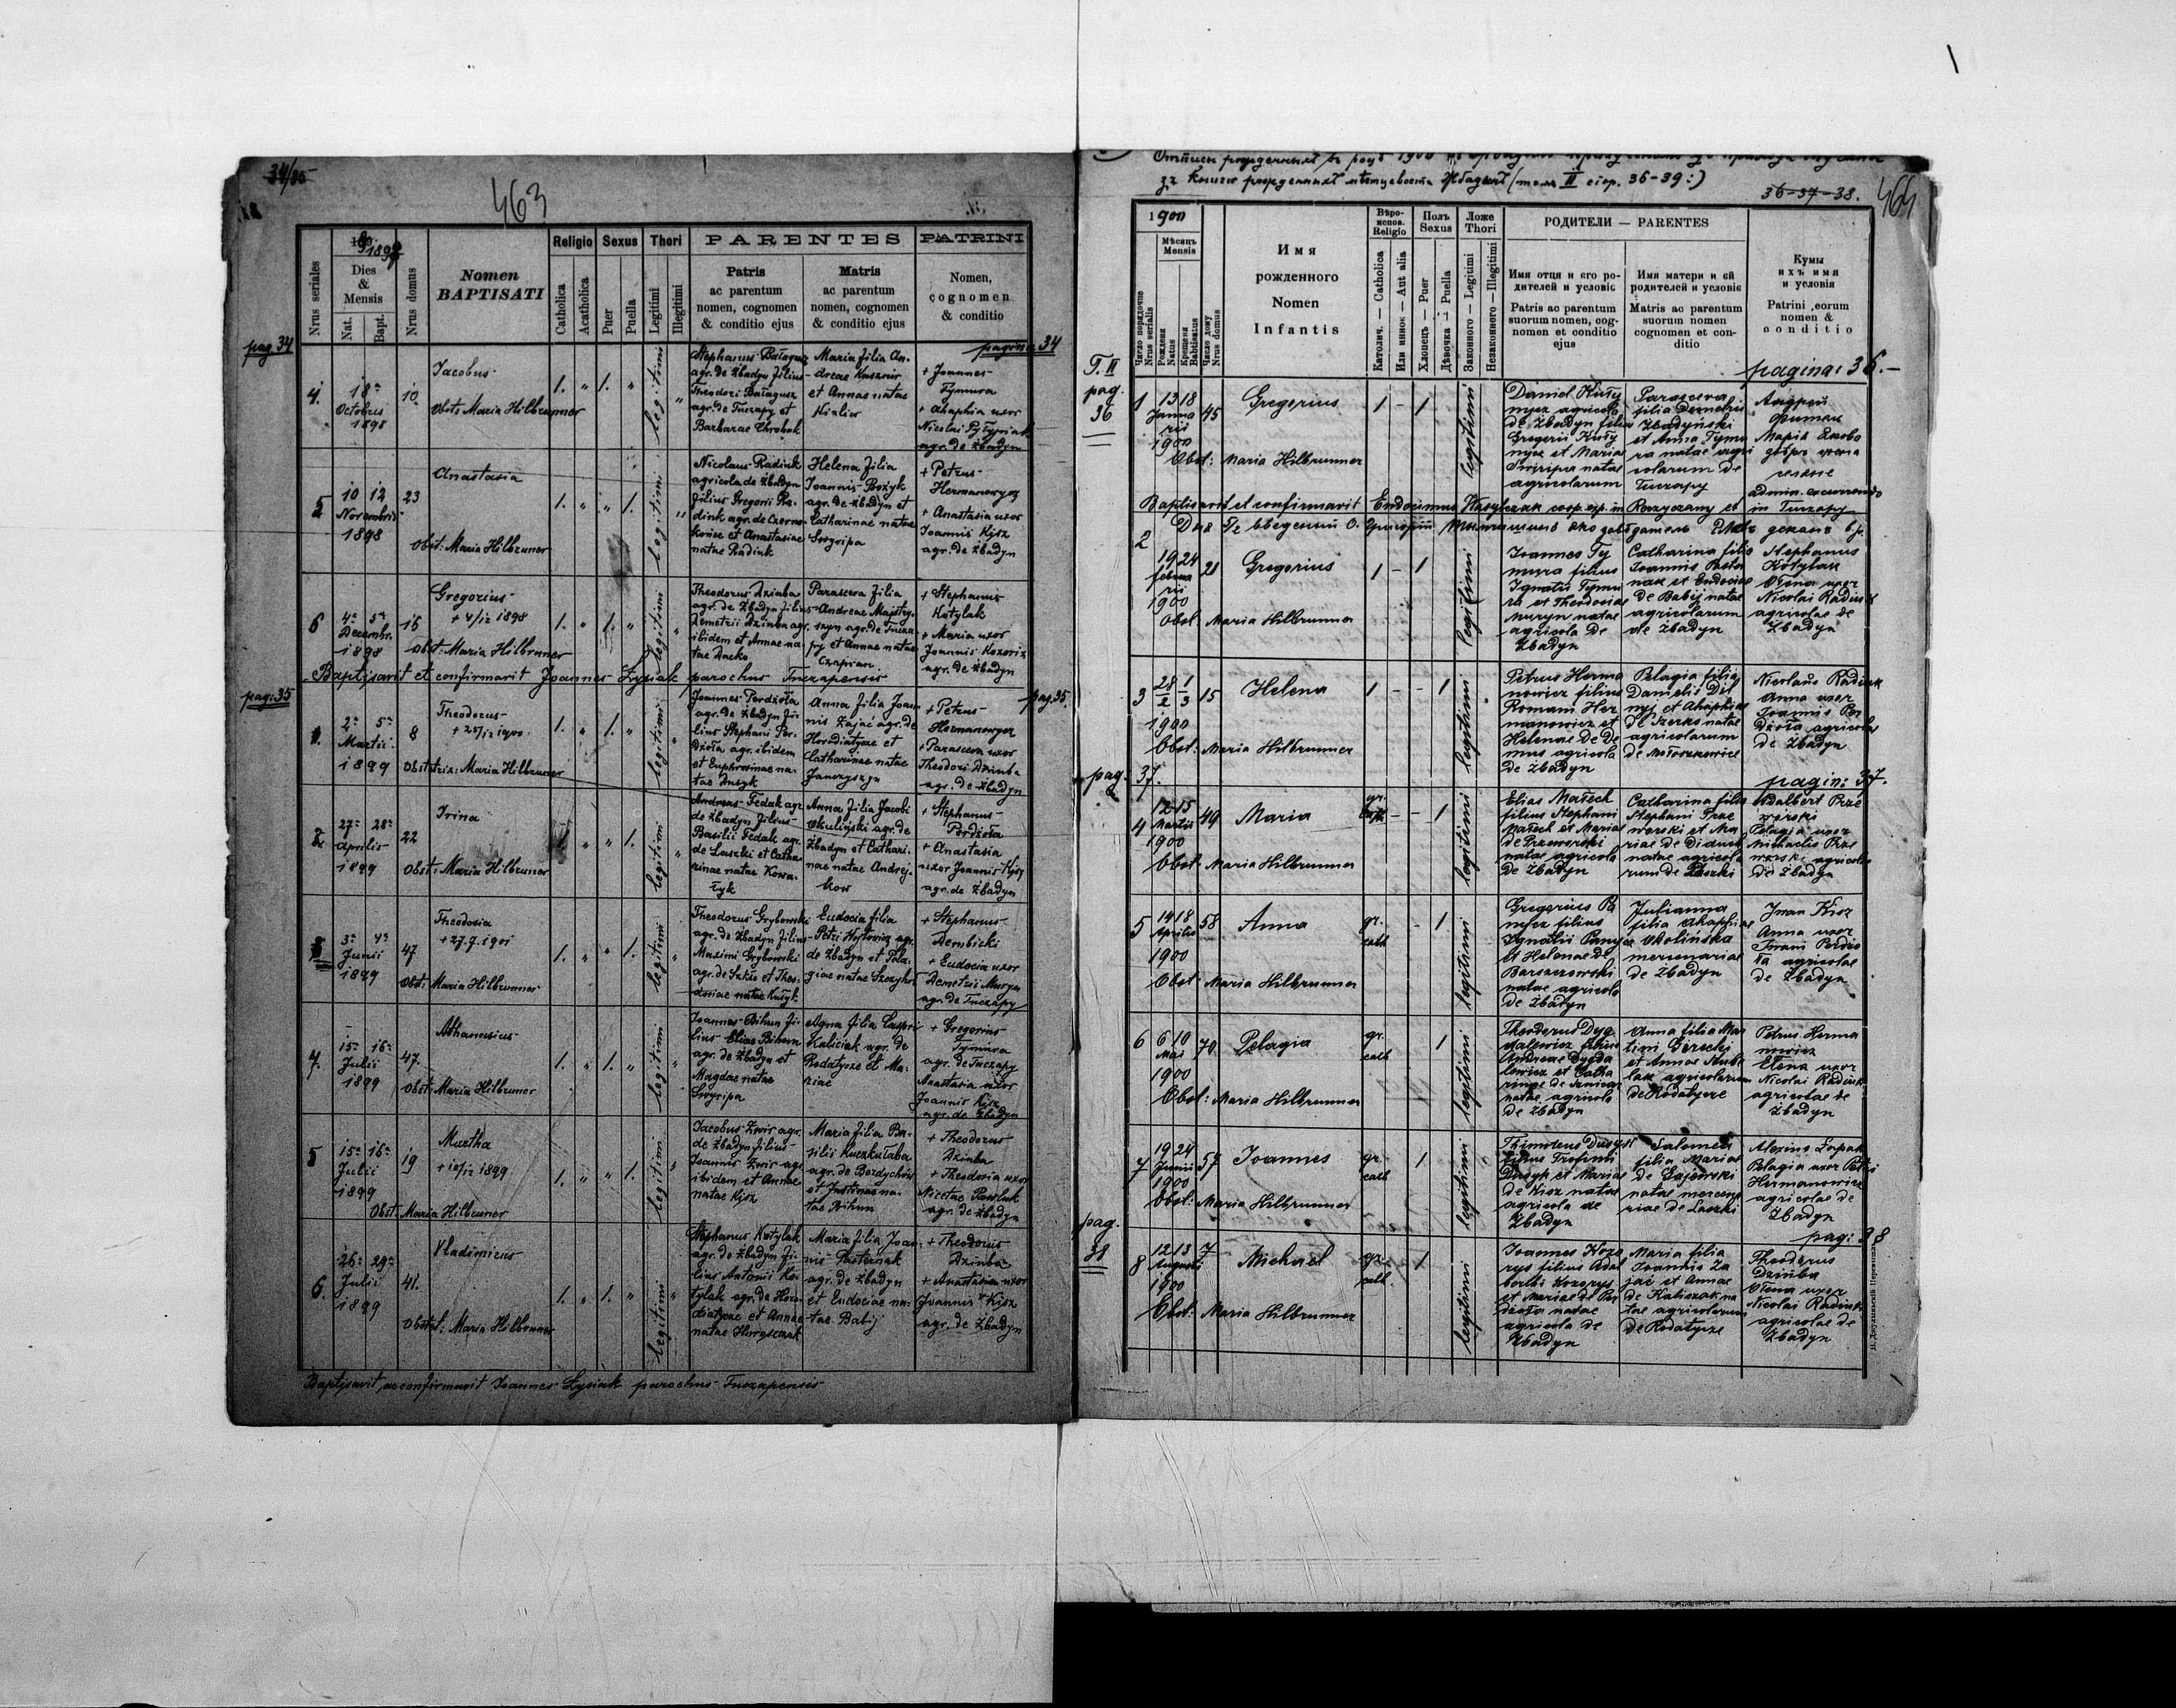 34/35
463
1898/1899
Nrus seriales
Dies & Mensis
Nat.
Bapt.
Nrus domus
Nomen BAPTISATI
Religio
Catholica
Acatholica
Sexus
Puer
Puella
Thori
Legitimi
Illegitimi
PARENTES
Patris
ac parentum
nomen, cognomen
& conditio ejus
Matris
ac parentum
nomen, cognomen
& conditio ejus
PATRINI
Nomen,
cognomen
& conditio
pag. 34
pagina 34
4.
18
Octobris
1898
10
Jacobus
Obst: Maria Hilbrunner
1. " 1. "
legitimi
Stephanus Bałagusz
agr. de Żbadyn filius
Theodori Bałagusz
agr. de Tuczapy et
Barbarae Chrobak
Maria filia An-
dreae
et Annae natae
+ Joannes
Tymura
+ Ahaphia uxor
Nicolai
agr. de Żbadyn
5
10 12
Novembris
1898
23
Anastasia
Obst: Maria Hilbruner
1. " " 1.
legitimi
Nicolaus Radiuk
agricola de Żbadyn
filius Gregorii Ra-
diuk agr. de Czerno-
końce et Anastasiae
natae Radiuk
Helena filia
Joannis Bożyk
agr. de Żbadyn et
Catharinae natae
Swyripa
+ Petrus
Hermanowycz
+ Anastasia uxor
Joannis Kisz
agr. de Żbadyn
6
4 5
Decembr.
1898
16
Gregorius
+ 4/12 1898
Obst: Maria Hilbruner
1. " 1. "
legitimi
Theodorus Dzinba
agr. de Żbadyn filius
Demetrii Dzinba agr.
ibidem et Annae na-
tae
Parasceva filia
Andreae
szyn agr. de Tucza-
py et Annae natae
Czaprian
+ Stephanus
Kotylak
+ Maria uxor
Joannis
agr. de Żbadyn
Baptisavit et confirmavit Joannes Łysiak parochus Tuczapensis
pag. 35
pag. 35.
1.
2 5
Martii
1899
8
Theodorus
Obstetrix: Maria Hilbruner
1. " 1. "
legitimi
Joannes Perdzoła
agr. de Żbadyn fi-
lius Stephani Per-
dzoła agr. ibidem
et Euphrosinae na-
tae Dusyk
Anna filia Joan-
nis Zajac agr. de
Horodiatycze et
Catharinae natae
Janczyszyn
+ Petrus
Hermanowycz
+ Parasceva uxor
Theodori Dzinba
agr. de Żbadyn
2
27 28
Aprilis
1899
22
Irina
Obst: Maria Hilbruner
1. " " 1.
legitimi
Andreas Fedak agr.
de Żbadyn filius
Basilii Fedak agr.
de Laszki et Catha-
rinae natae Kowa-
łyk
Anna filia Jacobi
Okuliński agr. de
Żbadyn et Cathari-
nae natae Andrej-
kow
+ Stephanus
Perdzoła
+ Anastasia
uxor Joannis Kisz
agr. de Żbadyn
3
3 4
Junii
1899
47
Theodosia
+ 27.7.1901
Obst: Maria Hilbrunner
1. " " 1.
legitimi
Theodorus Grybowski
agr. de Żbadyn filius
Maximi Grybowski
agr. de et Theo-
dosiae natae Kułyk
Eudocia filia
Petri Wojtowicz agr.
de Żbadyn et Pela-
giae natae
+ Stephanus
Dembicki
+ Eudocia uxor
Demetrii Muryn
agr. de Tuczapy
4.
15 16
Julii
1899
47.
Athanasius
Obst: Maria Hilbruner
1. " 1. "
legitimi
Joannes Bihun fi-
lius Eliae Bihun
agr. de Żbadyn et
Magdae natae
Swyripa
Agna filia Caspri
Kaliciak agr. de
Rodatycze et Ma-
riae
+ Gregorius
Tymura
agr. de Tuczapy
Anastasia uxor
Joannis Kisz
agr. de Żbadyn
5
15 16
Julii
1899
19
Martha
+ 10/12 1899
Obst. Maria Hilbruner
1. " " 1.
legitimi
Jacobus Zwir agr.
de Żbadyn filius
Joannis Zwir agr.
ibidem et Annae
natae Kisz
Maria filia Ba-
silii Kuczkułaba
agr. de
et Justinae na-
tae Bihun
+ Theodorus
Dzinba
+ Theodosia uxor
Nicetae Pawluk
agr. de Żbadyn
6.
26 29
Julii
1899
41.
Vladimirus
Obstet: Maria Hilbruner
1. " 1. "
legitimi
Stephanus Kotylak
agr. de Żbadyn fi-
lius Antonii Ko-
tylak agr. de Horo-
diatycze et Annae
natae
Maria filia Joan-
nis Pasternak
agr. de Żbadyn
et Eudociae na-
tae Babij
+ Theodorus
Dzinba
+ Anastasia uxor
Joannis Kisz
agr. de Żbadyn
Baptisavit, ac confirmavit Joannes Łysiak parochus Tuczapensis
36-37-38.
464
1900
Число порядочне
Nrus serialis
Мѣсяць
Mensis
Рожденя
Natus
Крещеня
Babtisatus
Число дому
Nrus domus
Имя
рожденного
Nomen
Infantis
Вѣро-
испов.
Religio
Католич. — Catholica
Или иннок — Aut alia
Полъ
Sexus
Хлопець — Puer
Дѣвочка — Puella
Ложе
Thori
Законного — Legitimi
Незаконного — Illegitimi
РОДИТЕЛИ — PARENTES
Имя отця и єго ро-
дителей и условіє
Patris ac parentum
suorum nomen, cog-
nomen et conditio
ejus
Имя матери и єй
родителей и условіє
Matris ac parentum
suorum nomen
cognomen et con-
ditio
Кумы
ихъ имя
и условія
Patrini eorum
nomen &
conditio
pagina: 36.
T. II
pag.
36
1
13 18
Janua
rii
1900
45
Gregorius
Obst: Maria Hilbrunner
1 - 1
legitimi
Daniel Kuły
nycz agricola
de Żbadyn filius
Gregorii Kuły
nycz et Maria
Swiripa natae
agricolarum
Parasceva
filia Demetrii
Żbadyński
et Anna Tymu
ra natae agri
colarum de
Tuczapy
Андрей
Марія
Baptisavit et confirmavit Eudocimus Wasylczak coop. exp. in et
admin. excurrendo
in Tuczapy
2
19 24
Februa
rii
1900
21
Gregorius
Obst: Maria Hilbrunner
1 - 1
legitimi
Joannes Ty
mura filius
Ignatii Tymu
ra et Theodosiae
Muryn natae
agricola de
Żbadyn
Catharina filia
Joannis Paster
nak et Eudociae
de Babij natae
agricolarum
de Żbadyn
Stephanus
Kotylak
Ołena uxor
Nicolai Radiuk
agricolae de
Żbadyn
3
28/2 1/3
1900
15
Helena
Obst: Maria Hilbrunner
1 - - 1
legitimi
Petrus Herma
nowicz filius
Romani Her
manowicz et
Helenae de De
mus agricola
de Żbadyn
Pelagia filia
Danielis Dil
nyj et Ahaphiae
de Szerko natae
agricolarum
de Małoszkowice
Nicolaus Radiuk
Anna uxor
Joannis Per
dzoła agricolae
de Żbadyn
pag. 37.
pagin: 37.
4
12 15
Martii
1900
49
Maria
Obst: Maria Hilbrunner
gr.
cath. - - 1
legitimi
Elias Małech
filius Stephani
Małech et Mariae
de Przeworski
natae agricola
de Żbadyn
Catharina filia
Stephani Prze
worski et Ma
riae de
natae agricola
rum de Laszki
Adalbert Prze
worski
Pelagia uxor
Michaelis Prze
worski agricolae
de Żbadyn
5
14 18
Aprilis
1900
58
Anna
Obst: Maria Hilbrunner
gr.
cath - 1
legitimi
Gregorius Pa
nycz filius
Ignatii Panycz
et Helenae de
Barszczowski
natae agricola
de Żbadyn
Julianna
filia Ahaphiae
Okolińska
mercenariae
de Żbadyn
Iwan Kisz
Anna uxor
Iwani Perdzo
ła agricolae
de Żbadyn
6
6 10
Mai
1900
70
Pelagia
Obst: Maria Hilbrunner
gr.
cath 1
legitimi
Theodorus Dyg
dalewicz filius
Andreae Dygda
lewicz et Catha
rinae de
natae agricola
de Żbadyn
Anna filia Mar
tini Gerecki
et Annae
agricolarum
de Rodatycze
Petrus Herma
nowicz
Elena uxor
Nicolai Radiuk
agricolae de
Żbadyn
7
19 24
Junii
1900
57
Joannes
Obst: Maria Hilbrunner
gr.
cath 1
legitimi
Thimoteus Dusyk
filius Trofimi
Dusyk et Mariae
de Kisz natae
agricola de
Żbadyn
Salomea
filia Mariae
de Gajewski
natae mercena
riae de Laszki
Alexius
Pelagia uxor Petri
Hermanowicz
agricolae de
Żbadyn
pag.
38
pag: 38
8
12 13
Augusti
1900
7
Michael
Obst: Maria Hilbrunner
gr.
cath. 1
legitimi
Joannes Kozo
rys filius Adal
berthi Kozorys
et Mariae de Per
dzoła natae
agricola de
Żbadyn
Maria filia
Joannis Za
jac et Annae
de Kaliczak na
tae agricolarum
de Rodatycze
Theodorus
Dzinba
Ołena uxor
Nicolai Radiuk
agricolae de
Żbadyn